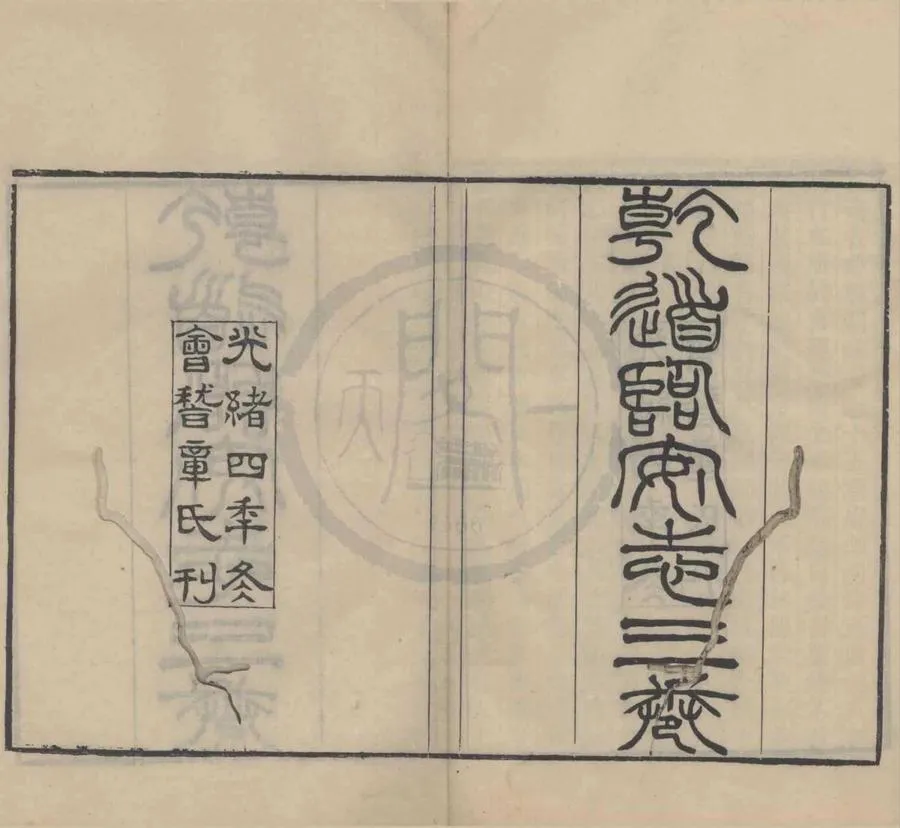 乾道臨安志三卷
光緒四秊冬
會稽章氏刊
天一閣